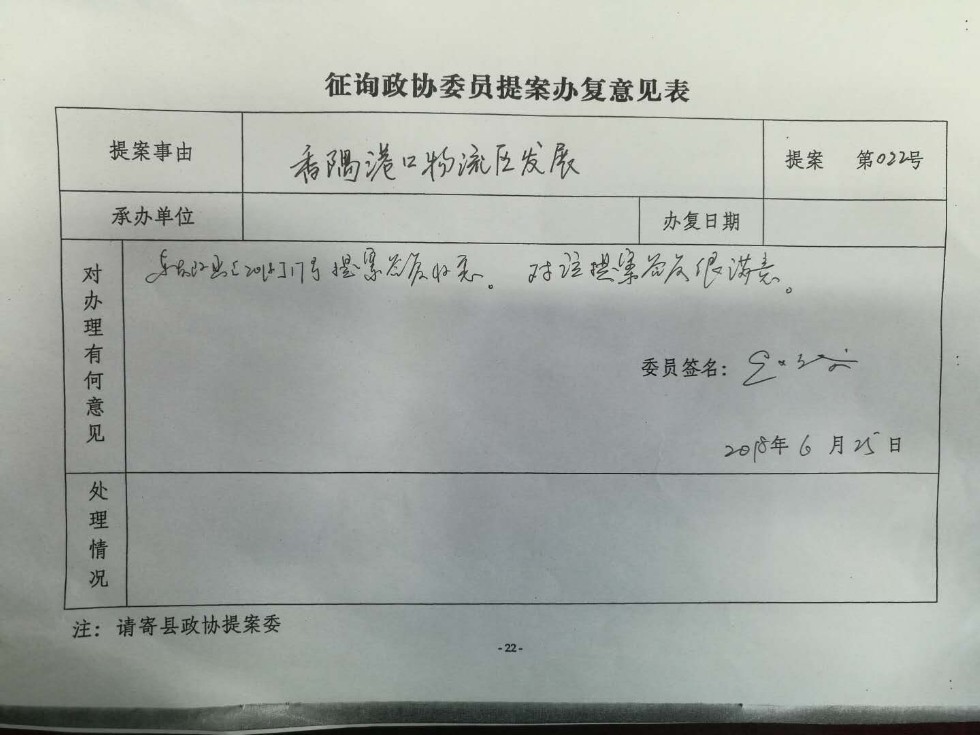 征询政协委员提案办复意见表
提案事由 香隅港口物流区发展 提案 第022号
承办单位 办复日期
对办理有何意见
号提案答复收悉。对该提案答复很满意。
委员签名:
2018年6月25日
处理情况
注：请寄县政协提案委
-22-